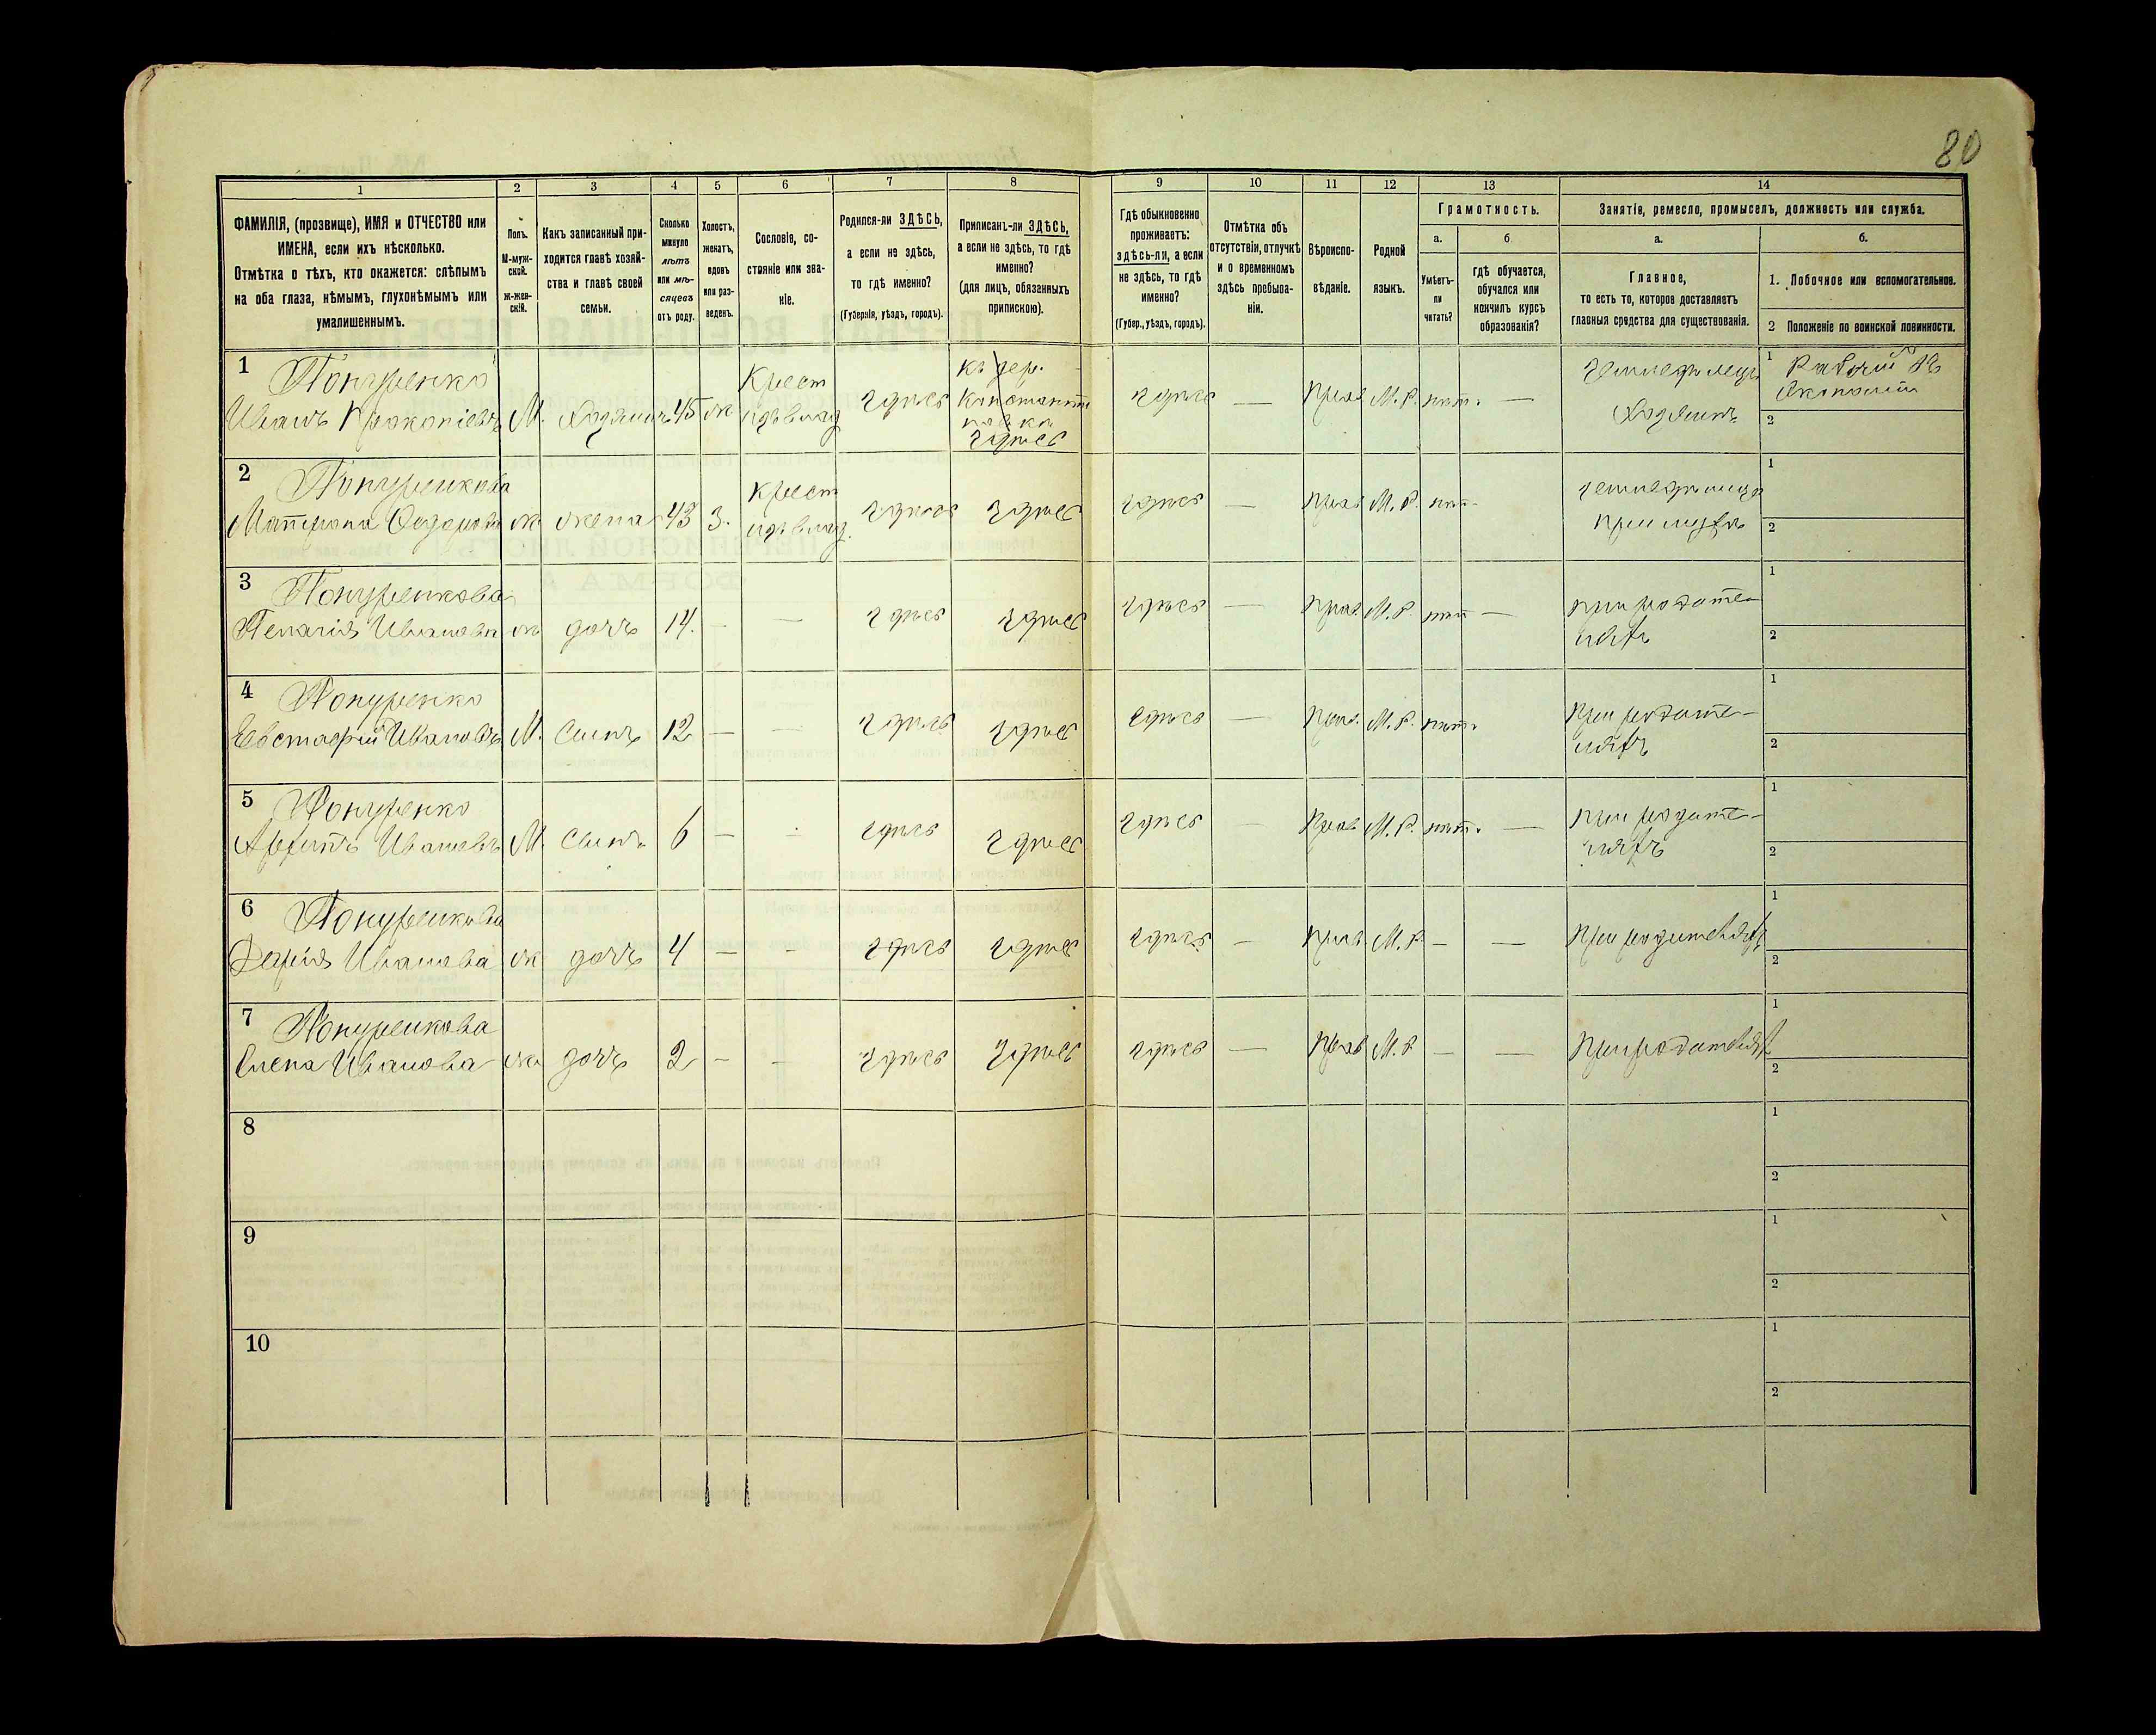 80
1
2
3
4
5
6
7
8
9
10
11
12
13
14
ФАМИЛІЯ, (прозвище), ИМЯ и ОТЧЕСТВО или
ИМЕНА, если ихъ нѣсколько.
Отмѣтка о тѣхъ, кто окажется: слѣпымъ
на оба глаза, нѣмымъ, глухонѣмымъ или
умалишеннымъ.
Полъ.
М-муж-
ской.
Ж-жен-
скій.
Какъ записанный при-
ходится главѣ хозяй-
ства и главѣ своей
семьи.
Сколько
минуло
лѣтъ
или мѣ-
сяцевъ
отъ роду.
Холостъ,
женатъ,
вдовъ
или раз-
веденъ.
Сословіе, со-
стояніе или зва-
ніе.
Родился-ли ЗДѢСЬ,
а если не здѣсь,
то гдѣ именно?
(Губернія, уѣздъ, городъ).
Приписанъ-ли ЗДѢСЬ,
а если не здѣсь, то гдѣ
именно?
(для лицъ, обязанныхъ
припискою).
Гдѣ обыкновенно
проживаетъ:
здѣсь-ли, а если
не здѣсь, то гдѣ
именно?
(Губер., уѣздъ, городъ).
Отмѣтка объ
отсутствіи, отлучкѣ
и о временномъ
здѣсь пребыва-
ніи.
Вѣроиспо-
вѣданіе.
Родной
языкъ.
Грамотность.
а.
б
Умѣетъ-
ли
читать?
гдѣ обучается,
обучался или
кончилъ курсъ
образованія?
Занятіе, ремесло, промыселъ, должность или служба.
а.
б.
Главное,
то есть то, которое доставляетъ
главныя средства для существованія.
1. Побочное или вспомогательное.
2 Положеніе по воинской повинности.
1 Понуренко
Иванъ Прокопіевъ М. Хозяинъ 45 ж Крест
издѣвлад здѣсь къ дер.
Константи
новка
здѣсь здѣсь — Прав М.Р. нѣт. — земледѣлецъ
Хозяинъ 1 Рабочій въ
Экономіи
2
2 Понуренкова
Матрона ж жена 43 З. Крест
издѣвлад. здѣсь здѣсь здѣсь — Прав М.Р. нѣт земледѣлица
при мужѣ 1
2
3 Понуренкова
Пелагія Иванова ж дочь 14. — — здѣсь здѣсь здѣсь — Прав М.Р нѣт — при родите-
ляхъ 1
2
4 Понуренко
Евстафій Ивановъ М. Сынъ 12 — — здѣсь здѣсь здѣсь — Прав. М.Р. нѣт. при родите-
ляхъ 1
2
5 Понуренко
Архипъ Ивановъ М. Сынъ 6 — — здѣсь здѣсь здѣсь — Прав М.Р. нѣт. — при родите-
ляхъ 1
2
6 Понуренкова
Дарія Иванова ж дочь 4 — — здѣсь здѣсь здѣсь — Прав М.Р — — При родителяхъ 1
2
7 Понуренкова
Елена Иванова ж дочь 2 — — здѣсь здѣсь здѣсь — Прав М.Р — — При родителях 1
2
8 1
2
9 1
2
10 1
2